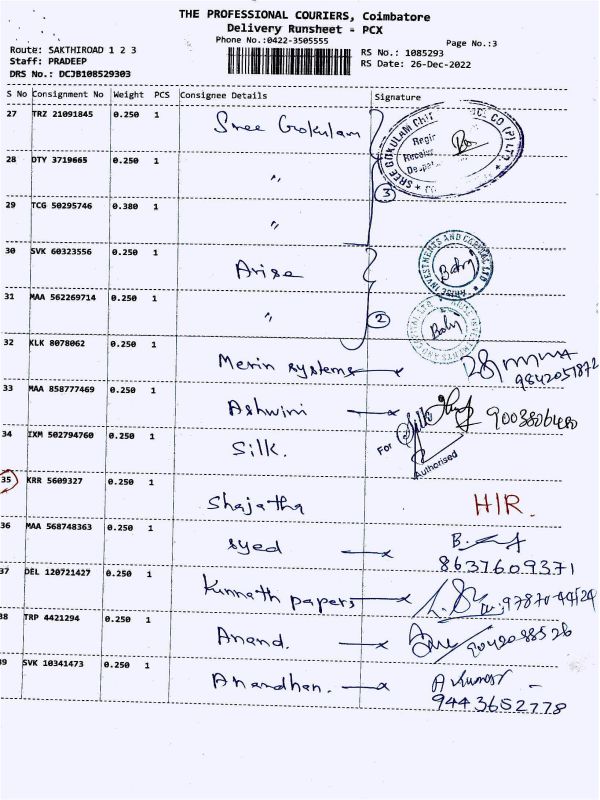 THE PROFESSIONAL COURIERS, Coimbatore
Delivery Runsheet - PCX
Phone No.:0422-3505555
Page No.:3
Route: SAKTHIROAD 1 2 3
RS No.: 1085293
Staff: PRADEEP
RS Date: 26-Dec-2022
DRS No.: DCJB108529303
S No Consignment No Weight PCS Consignee Details Signature
27 TRZ 21091845 0.250 1 Sree Gokulam
28 DTY 3719665 0.250 1 "
3
29 TCG 50295746 0.380 1 "
30 SVK 60323556 0.250 1 Arise
ARISE INVESTMENTS AND CAPITAL LTD
31 MAA 562269714 0.250 1 "
2
32 KLK 8078062 0.250 1 Merin systems
9842051872
33 MAA 858777469 0.250 1 Ashwini
For Silk
34 IXM 502794760 0.250 1 Silk.
Authorised
35 KRR 5609327 0.250 1 Shajatha H/R.
36 MAA 568748363 0.250 1 syed
8637609371
37 DEL 120721427 0.250 1 Kunnath papers
38 TRP 4421294 0.250 1 Anand.
39 SVK 10341473 0.250 1 Anandhan. A Kumar
9443652778